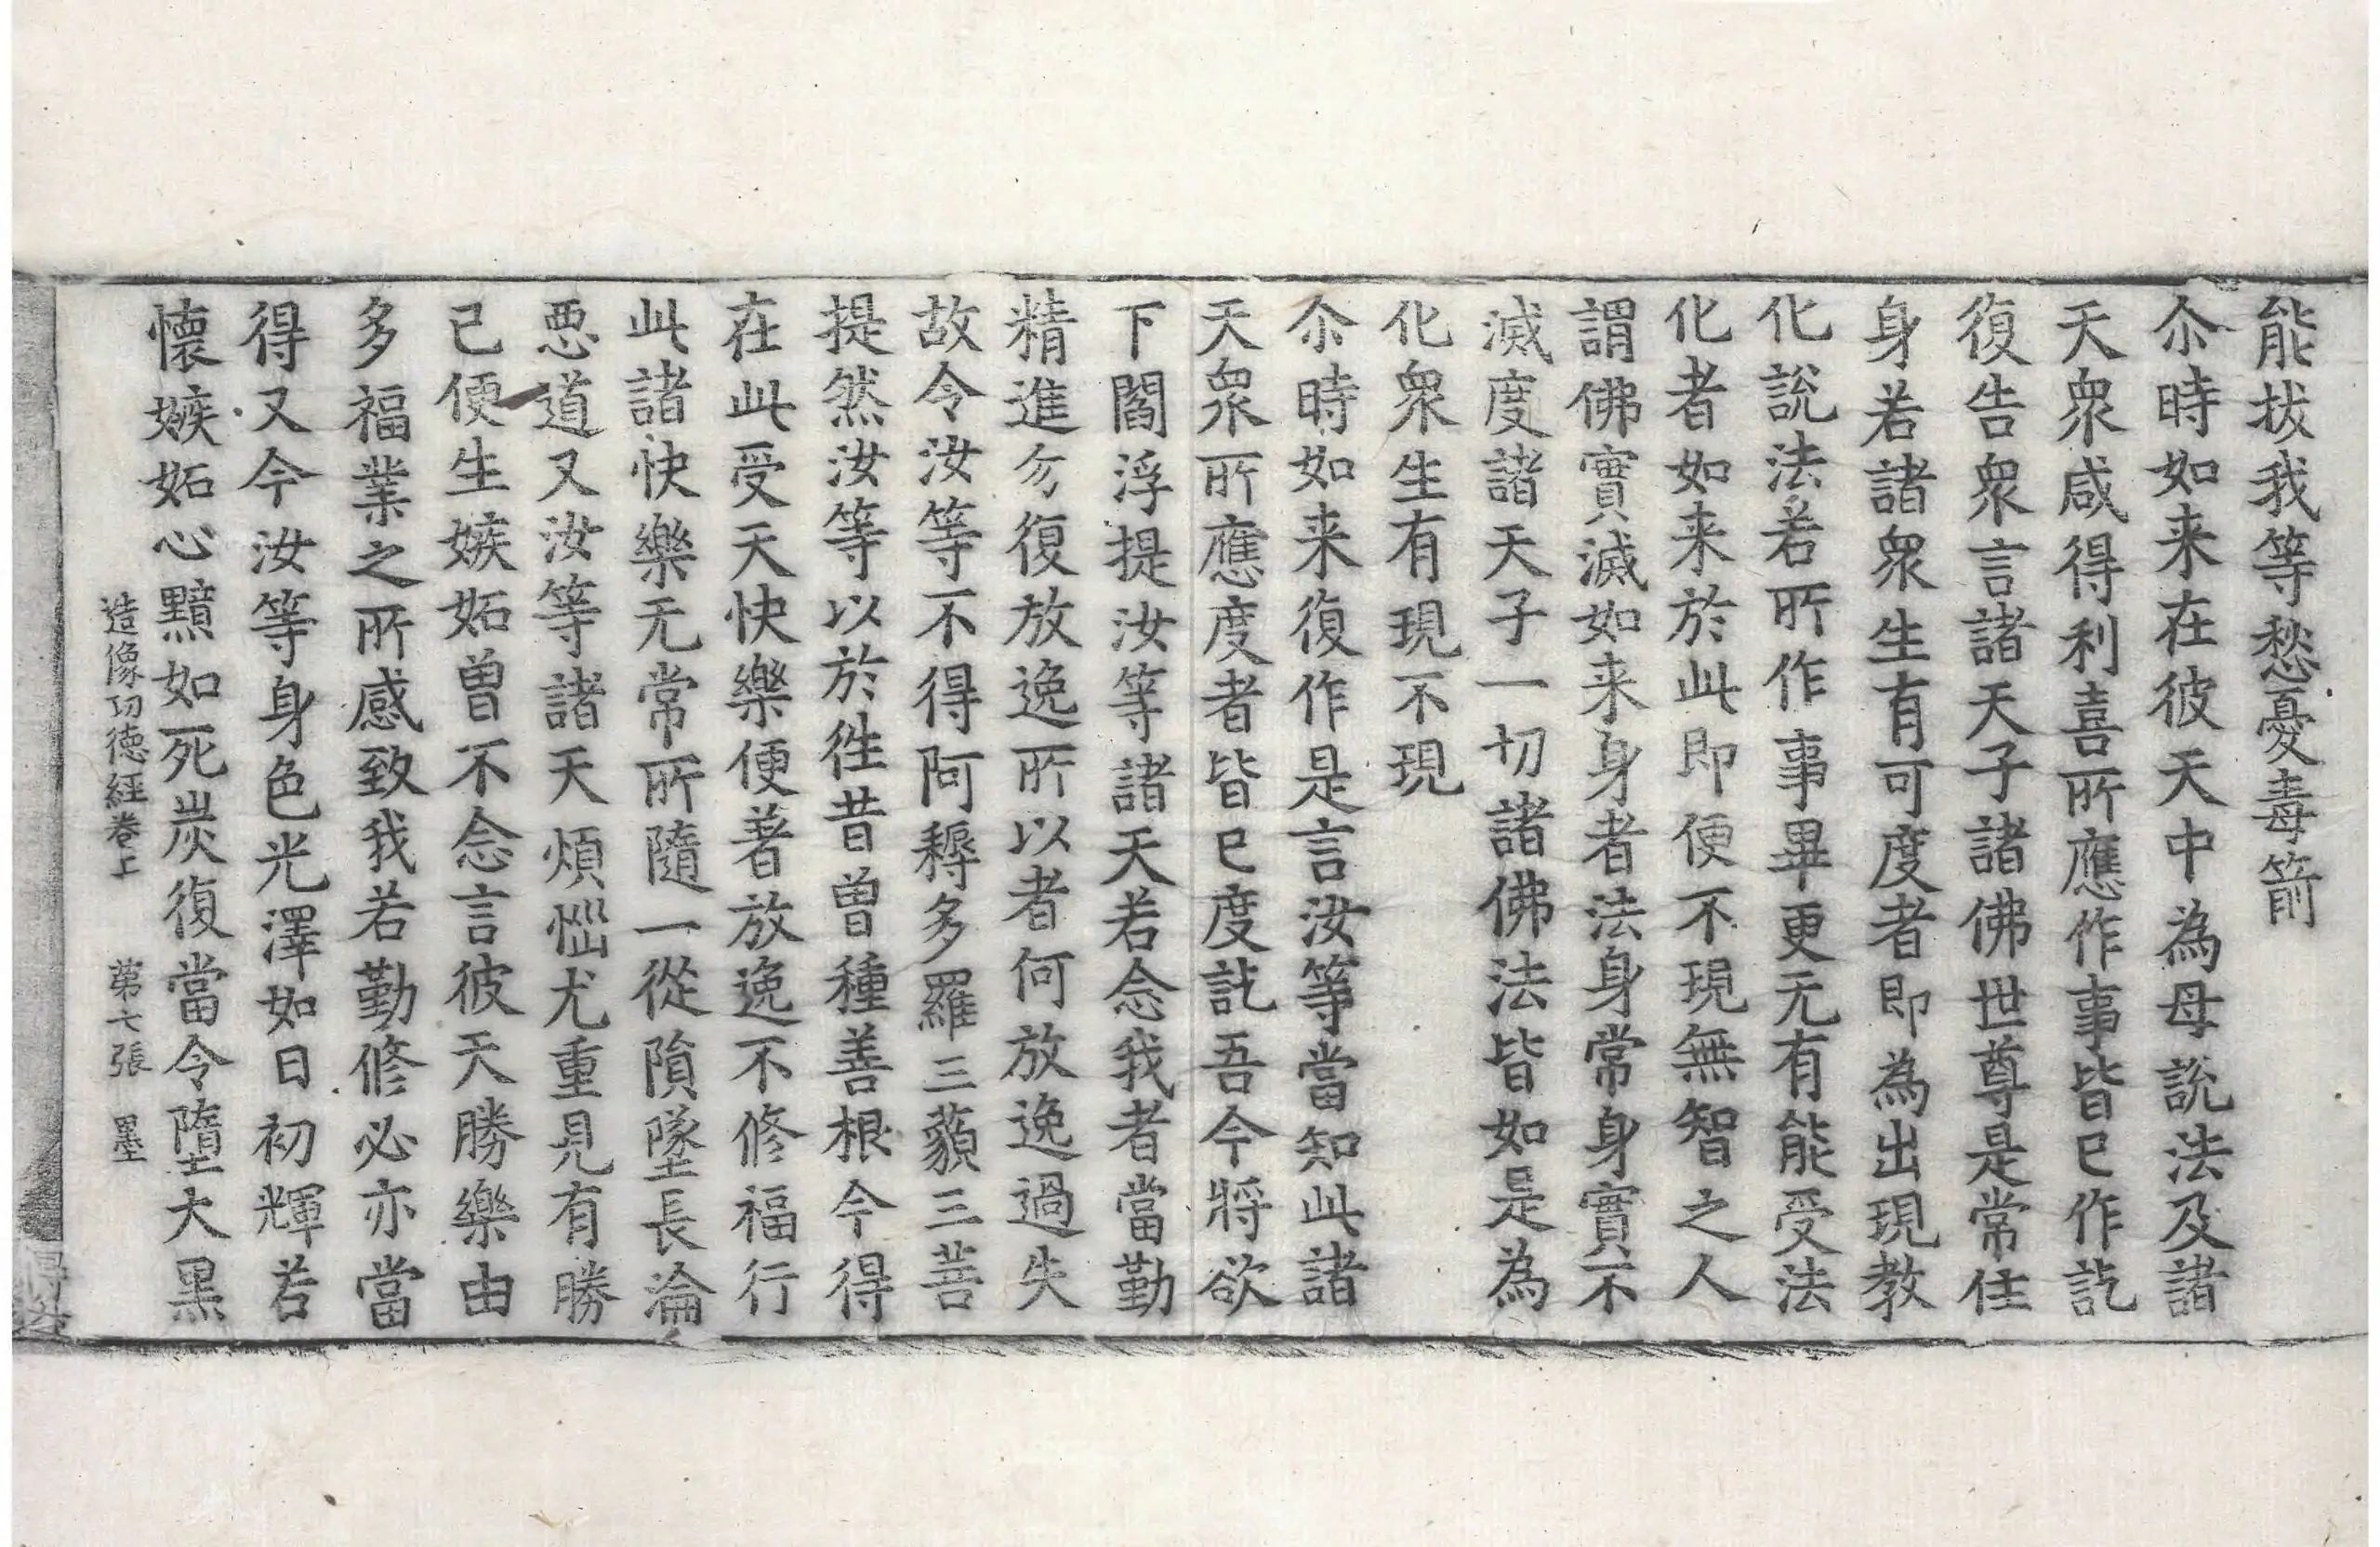 能拔我等愁憂毒箭
尒時如来在彼天中為母說法及諸
天衆咸得利喜所應作事皆已作訖
復告衆言諸天子諸佛世尊是常住
身若諸衆生有可度者即為出現教
化說法若所作事畢更无有能受法
化者如来於此即便不現無智之人
謂佛實滅如来身者法身常身實不
滅度諸天子一切諸佛法皆如是為
化衆生有現不現
尒時如来復作是言汝等當知此諸
天衆所應度者皆已度訖吾今將欲
下閻浮提汝等諸天若念我者當勤
精進勿復放逸所以者何放逸過失
故令汝等不得阿耨多羅三藐三菩
提然汝等以於徃昔曾種善根今得
在此受天快樂便著放逸不修福行
此諸快樂无常所隨一從隕墜長淪
惡道又汝等諸天煩惱尤重見有勝
已便生嫉妬曾不念言彼天勝樂由
多福業之所感致我若勤修必亦當
得又今汝等身色光澤如日初輝若
懷嫉妬心黯如死炭復當令墮大黑
造像功德經卷上　第七張　墨